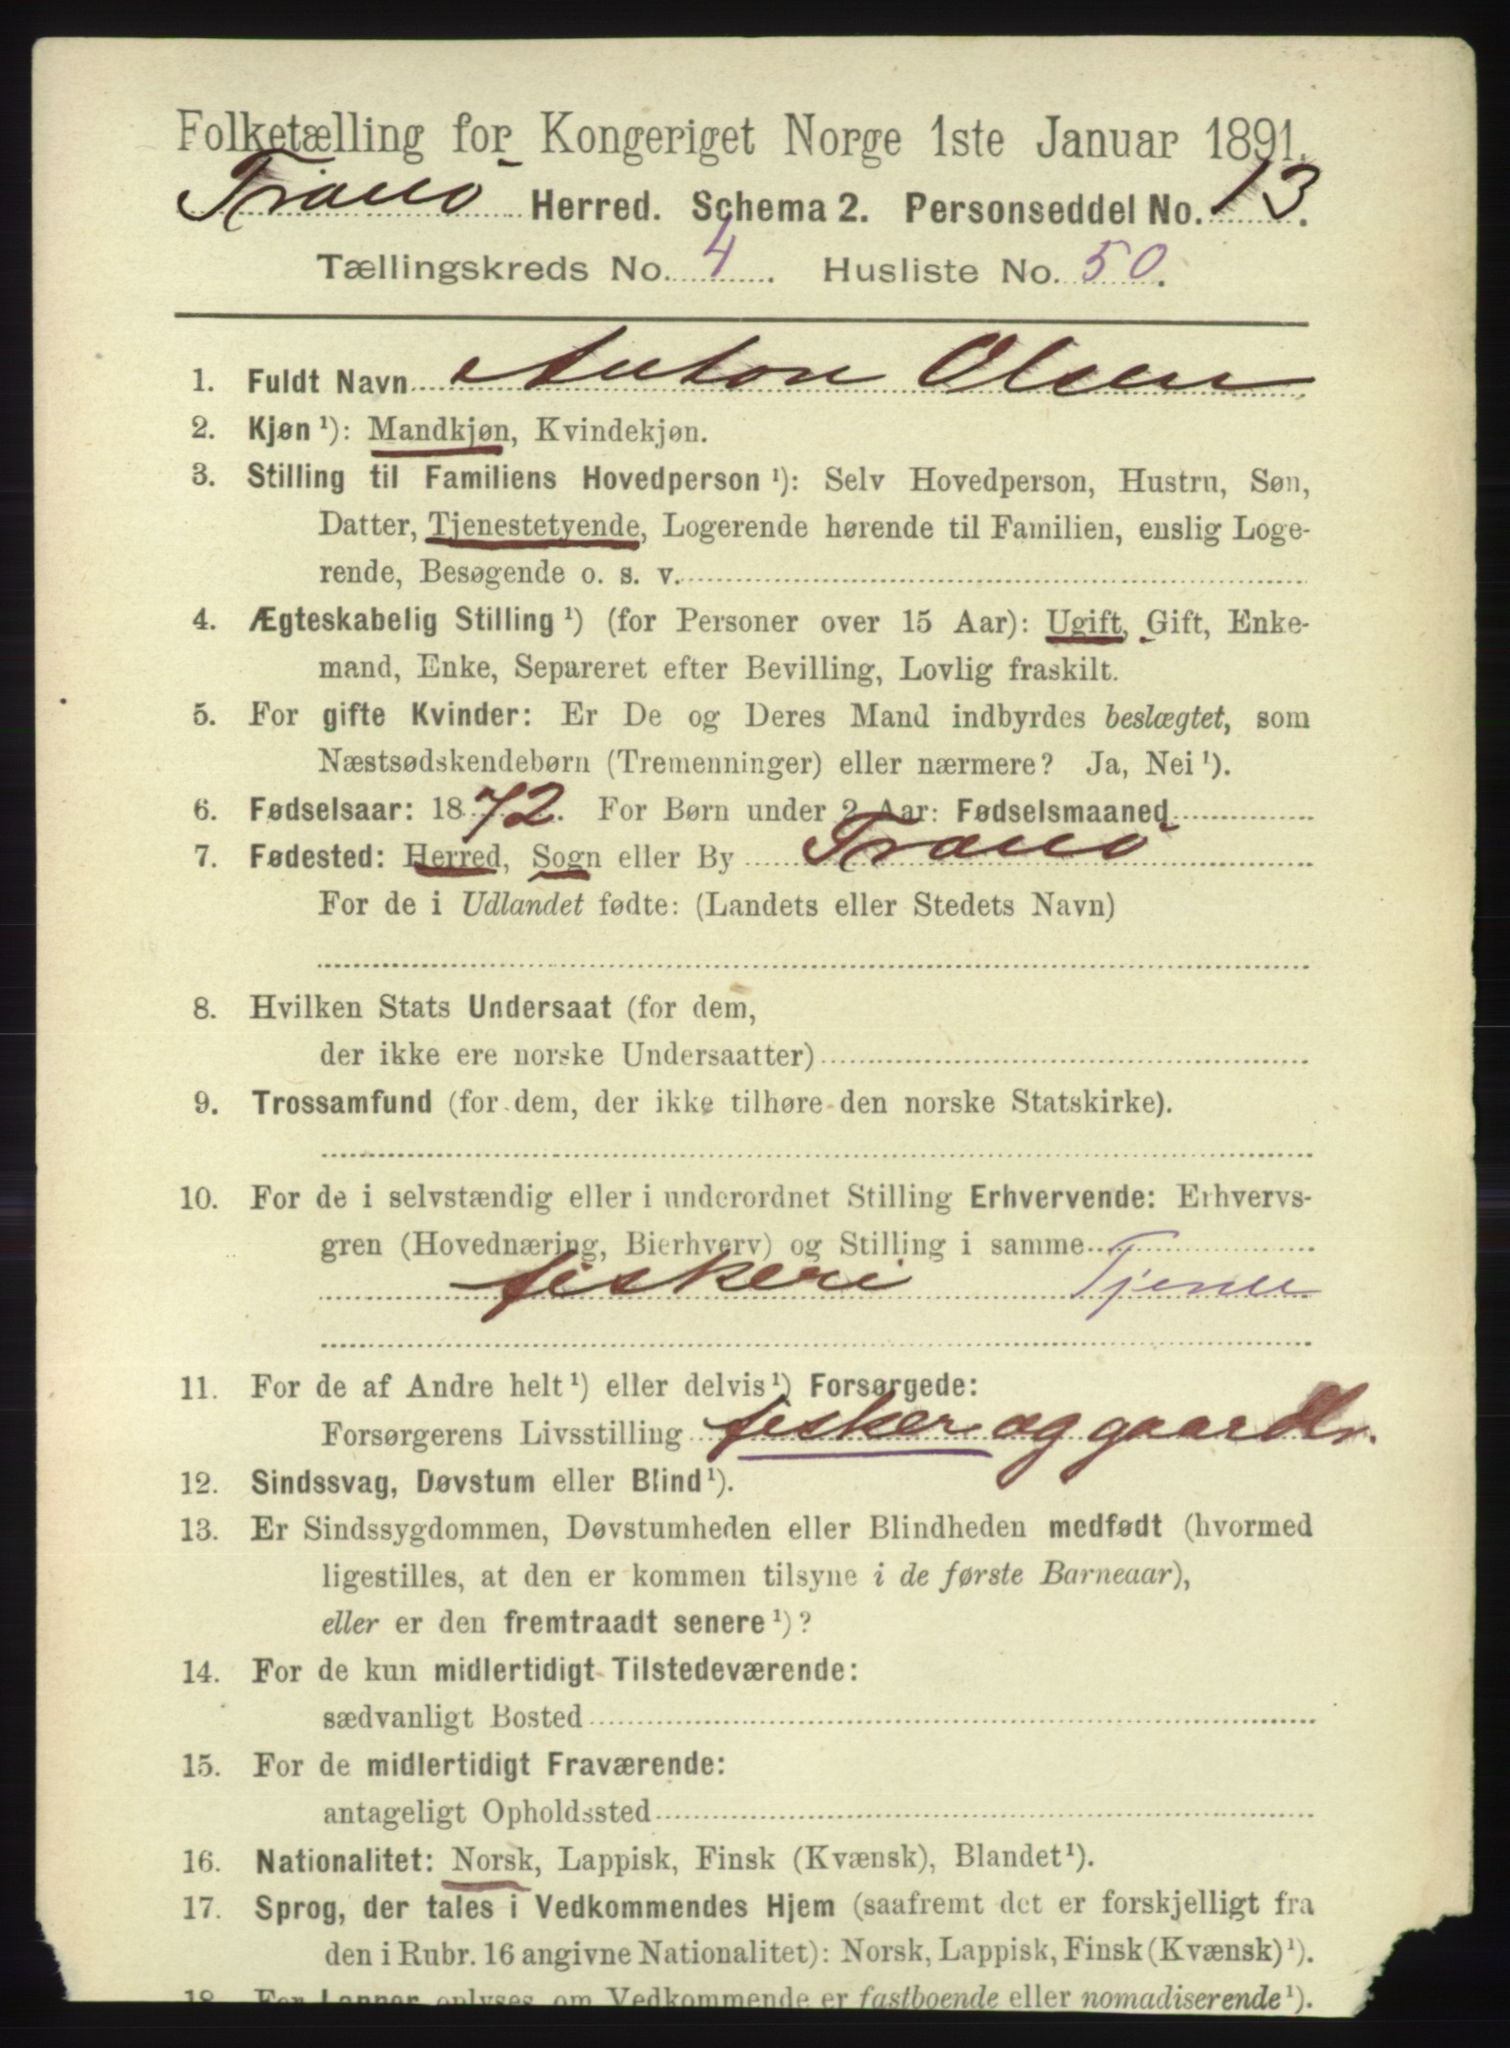 Folketælling for Kongeriget Norge 1ste Januar 1891.
Tranø Herred. Schema 2. Personseddel No. 13.
Tællingskreds No. 4. Husliste No. 50.
1. Fuldt Navn Anton Olsen
2. Kjøn ¹): Mandkjøn, Kvindekjøn.
3. Stilling til Familiens Hovedperson ¹): Selv Hovedperson, Hustru, Søn,
Datter, Tjenestetyende, Logerende hørende til Familien, enslig Loge-
rende, Besøgende o. s. v.
4. Ægteskabelig Stilling ¹) (for Personer over 15 Aar): Ugift, Gift, Enke-
mand, Enke, Separeret efter Bevilling, Lovlig fraskilt.
5. For gifte Kvinder: Er De og Deres Mand indbyrdes beslægtet, som
Næstsødskendebørn (Tremenninger) eller nærmere? Ja, Nei ¹).
6. Fødselsaar: 1872. For Børn under 2 Aar: Fødselsmaaned
7. Fødested: Herred, Sogn eller By Tranø
For de i Udlandet fødte: (Landets eller Stedets Navn)
8. Hvilken Stats Undersaat (for dem,
der ikke ere norske Undersaatter)
9. Trossamfund (for dem, der ikke tilhøre den norske Statskirke).
10. For de i selvstændig eller i underordnet Stilling Erhvervende: Erhvervs-
gren (Hovednæring, Bierhverv) og Stilling i samme
fiskeri Tjener
11. For de af Andre helt ¹) eller delvis ¹) Forsørgede:
Forsørgerens Livsstilling fisker og gaardbr.
12. Sindssvag, Døvstum eller Blind ¹).
13. Er Sindssygdommen, Døvstumheden eller Blindheden medfødt (hvormed
ligestilles, at den er kommen tilsyne i de første Barneaar),
eller er den fremtraadt senere ¹)?
14. For de kun midlertidigt Tilstedeværende:
sædvanligt Bosted
15. For de midlertidigt Fraværende:
antageligt Opholdssted
16. Nationalitet: Norsk, Lappisk, Finsk (Kvænsk), Blandet ¹).
17. Sprog, der tales i Vedkommendes Hjem (saafremt det er forskjelligt fra
den i Rubr. 16 angivne Nationalitet): Norsk, Lappisk, Finsk (Kvænsk) ¹).
18. For Lapper oplyses, om Vedkommende er fastboende eller nomadiserende ¹).